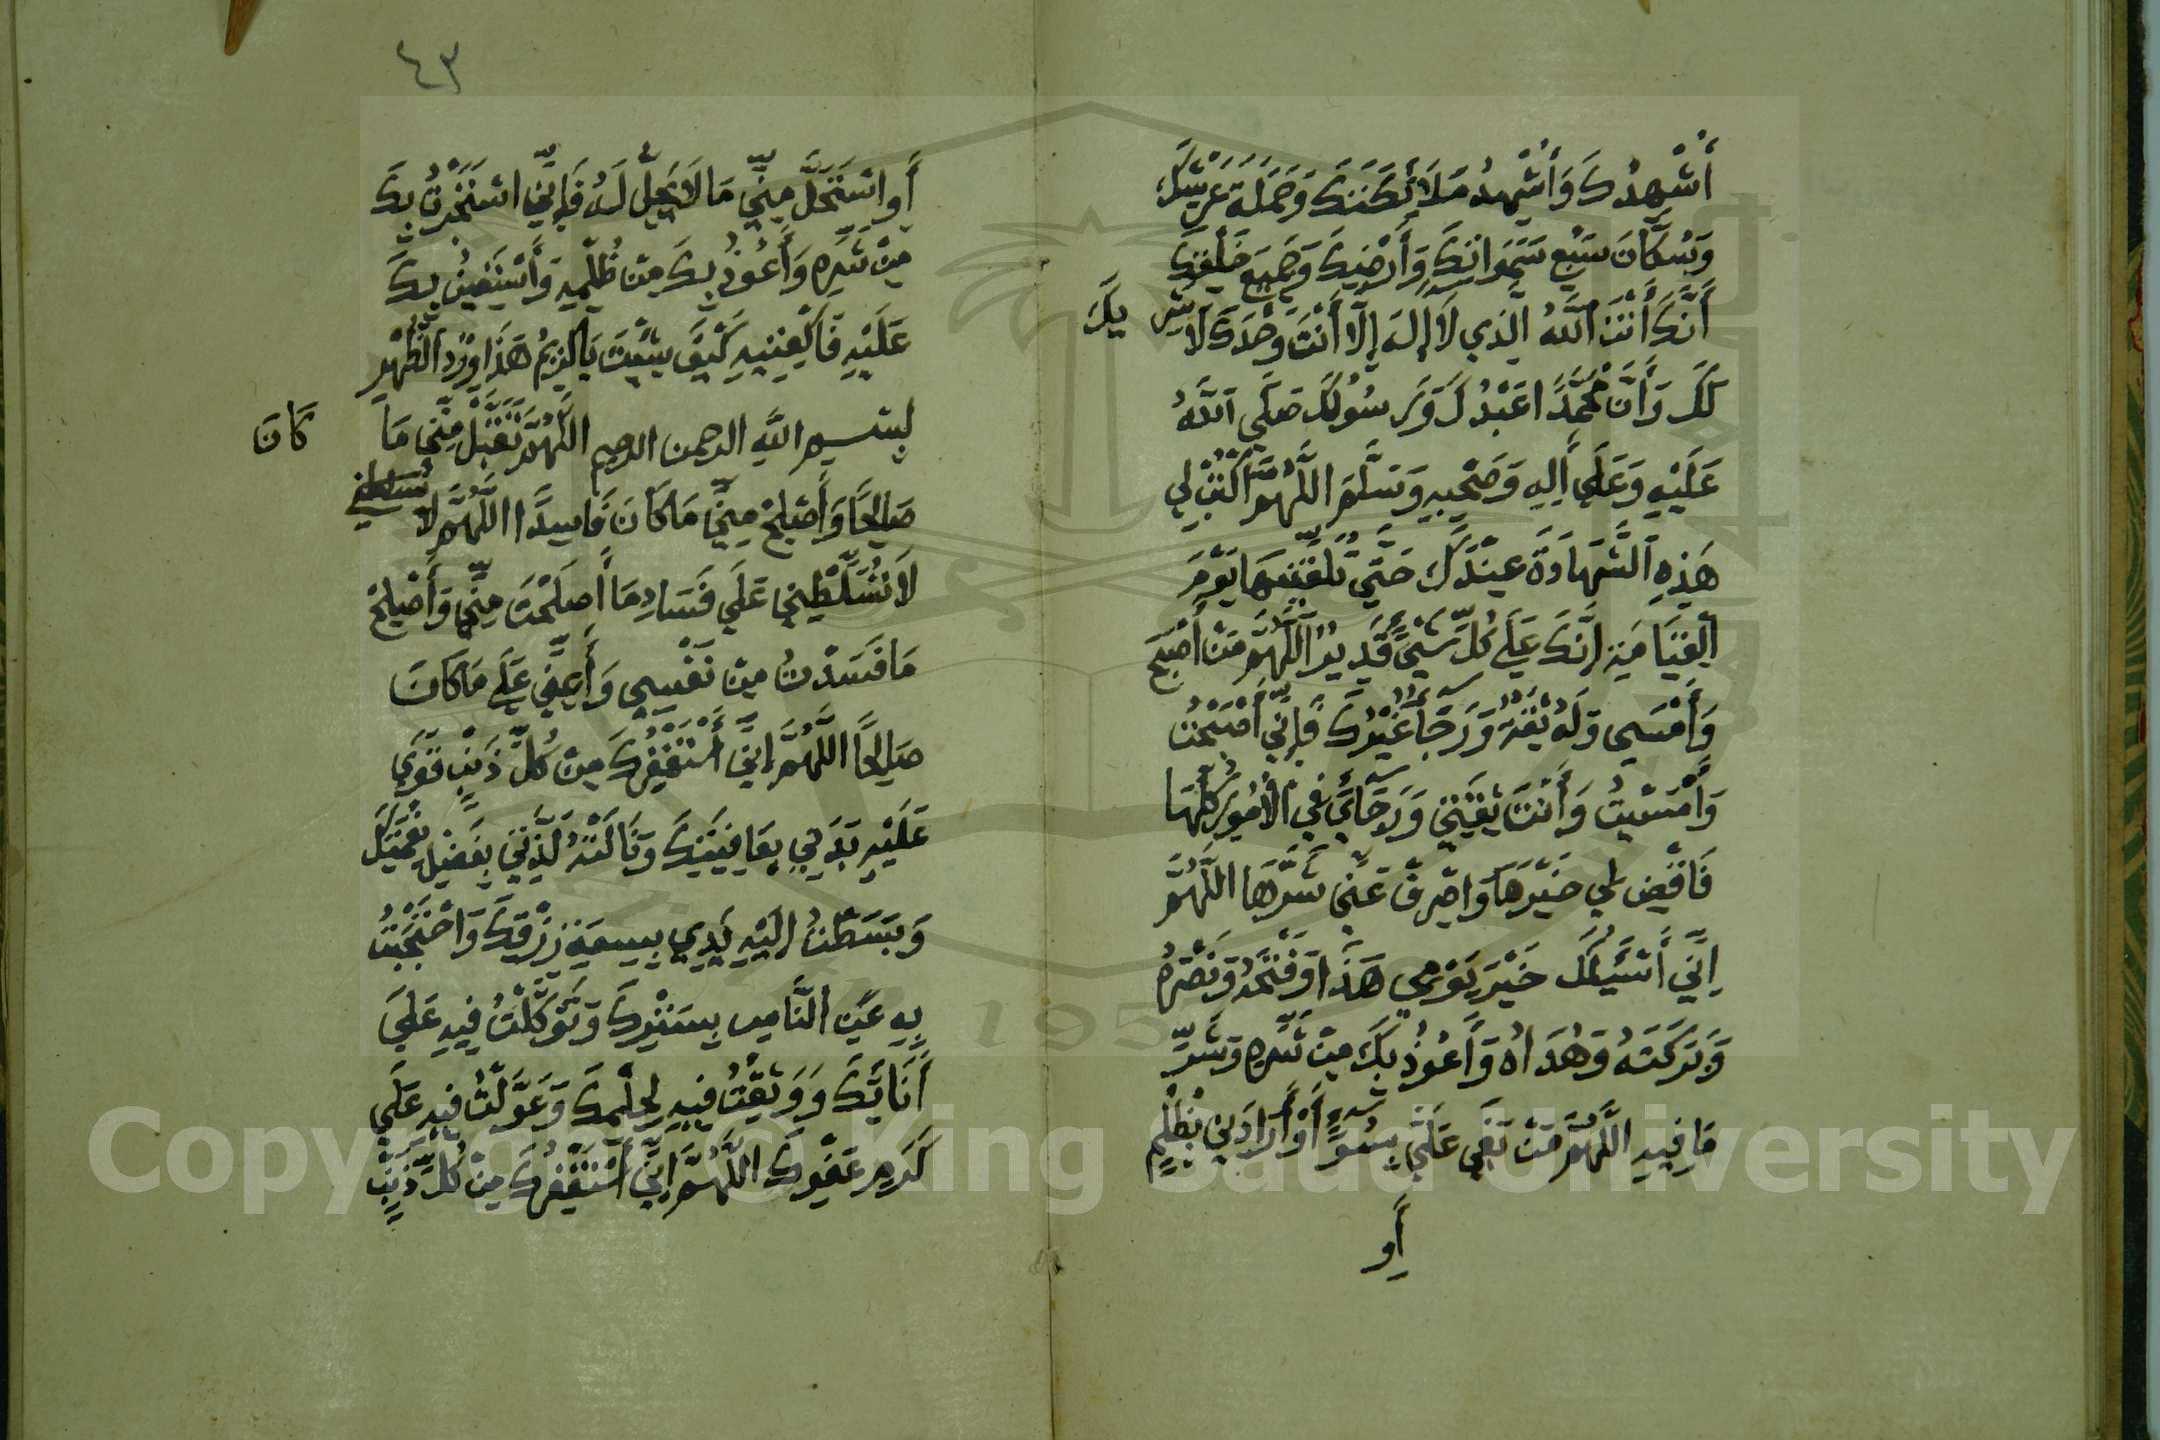 أُشْهِدُكَ وَأُشْهِدُ مَلَائِكَتَكَ وَحَمَلَةَ عَرْشِكَ
وَسُكَّانَ سَبْعِ سَمَوَاتِكَ وَأَرْضِيكَ وَجَمِيعِ خَلْقِكَ
أَنَّكَ أَنْتَ اللَّهُ الَّذِي لَا إِلَهَ إِلَّا أَنْتَ وَحْدَكَ لَا شَرِيكَ
لَكَ وَأَنَّ مُحَمَّدًا عَبْدُكَ وَرَسُولُكَ صَلَّى اللَّهُ
عَلَيْهِ وَعَلَى أَلِهِ وَصَحْبِهِ وَسَلَّمَ اللَّهُمَّ اكْتُبْ لِي
هَذِهِ الشَّهَادَةَ عِنْدَكَ حَتَّى تُلَقِّنِّيهَا يَوْمَ
الْقِيَامَةِ إِنَّكَ عَلَى كُلِّ شَيْءٍ قَدِيرٌ اللَّهُمَّ مَنْ أَصْبَحَ
وَأَمْسَى وَلَهُ ثِقَةٌ وَرَجَآءٌ غَيْرُكَ فَإِنِّي أَصْبَحْتُ
وَأَمْسَيْتُ وَأَنْتَ ثِقَتِي وَرَجَآئِي فِي الْأُمُورِ كُلِّهَا
فَاقْضِ لِي خَيْرَهَا وَاصْرِفْ عَنِّي شَرَّهَا اللَّهُمَّ
إِنِّي أَسْئَلُكَ خَيْرَ يَوْمِي هَذَا وَفَتْحَهُ وَنَصْرَهُ
وَبَرَكَتَهُ وَهُدَاهُ وَأَعُوذُ بِكَ مِنْ شَرِّهِ وَشَرِّ
مَا فِيهِ اللَّهُمَّ مَنْ بَغَى عَلَيَّ بِسُوٓءٍ أَوْ أَرَادَنِي بِظُلْمٍ
أَو
٤٣
أَوِ اسْتَحَلَّ مِنِّي مَا لَا يَحِلُّ لَهُ فَإِنِّي اسْتَجَرْتُ بِكَ
مِنْ شَرِّهِ وَأَعُوذُ بِكَ مِنْ ظُلْمِهِ وَأَسْتَعِينُ بِكَ
عَلَيْهِ فَاكْفِنِيهِ كَيْفَ شِئْتَ يَا كَرِيمُ هَذَا وِرْدُ الظُّهْرِ
بِسْمِ اللَّهِ الرحمن الرحيم اللَّهُمَّ تَقَبَّلْ مِنِّي مَا كَانَ
صَالِحًا وَأَصْلِحْ مِنِّي مَا كَانَ فَاسِدًا اللَّهُمَّ لَا تسلطني
لَا تُسَلِّطْنِي عَلَى فَسَادِ مَا أَصْلَحْتَ مِنِّي وَأَصْلِحْ
مَا فَسَدْتُ مِنْ نَفْسِي وَأَعِنِّي عَلَى مَا كَانَ
صَالِحًا اللَّهُمَّ إِنِّي أَسْتَغْفِرُكَ مِنْ كُلِّ ذَنْبٍ قَوِيَ
عَلَيْهِ بَدَنِي بِعَافِيَتِكَ وَنَالَتْهُ لَذَّتِي بِفَضْلِ نِعْمَتِكَ
وَبَسَطْتُ إِلَيْهِ يَدِي بِسِعَةِ رِزْقِكَ وَاحْتَجَبْتُ
بِهِ عَنِ النَّاسِ بِسَتْرِكَ وَتَوَكَّلْتُ فِيهِ عَلَى
أَنَائِكَ وَوَثِقْتُ فِيهِ لِحِلْمِكَ وَعَوَّلْتُ فِيهِ عَلَى
كَرَمِ عَفْوِكَ اللَّهُمَّ إِنِّي أَسْتَغْفِرُكَ مِنْ كُلِّ ذَنْبٍ
1957
Copyright © King Saud University